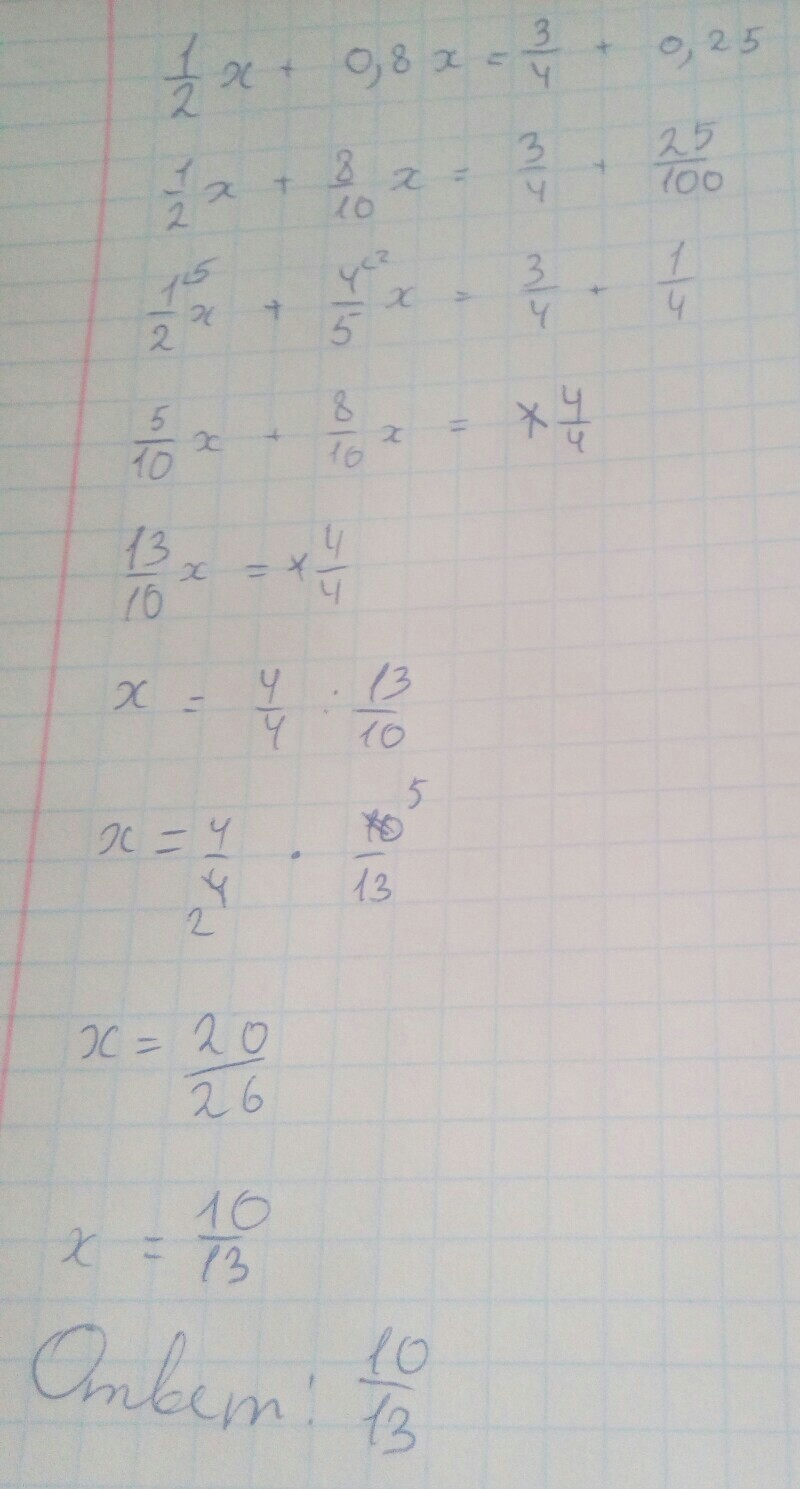 1/2 x + 0,8 x = 3/4 + 0,25
1/2 x + 8/10 x = 3/4 + 25/100
1/2 ⁵ x + 4/5 ² x = 3/4 + 1/4
5/10 x + 8/10 x = 4/4
13/10 x = 4/4
x = 4/4 : 13/10
x = 4/4 2 · 10/13 5
x = 20/26
x = 10/13
Ответ: 10/13